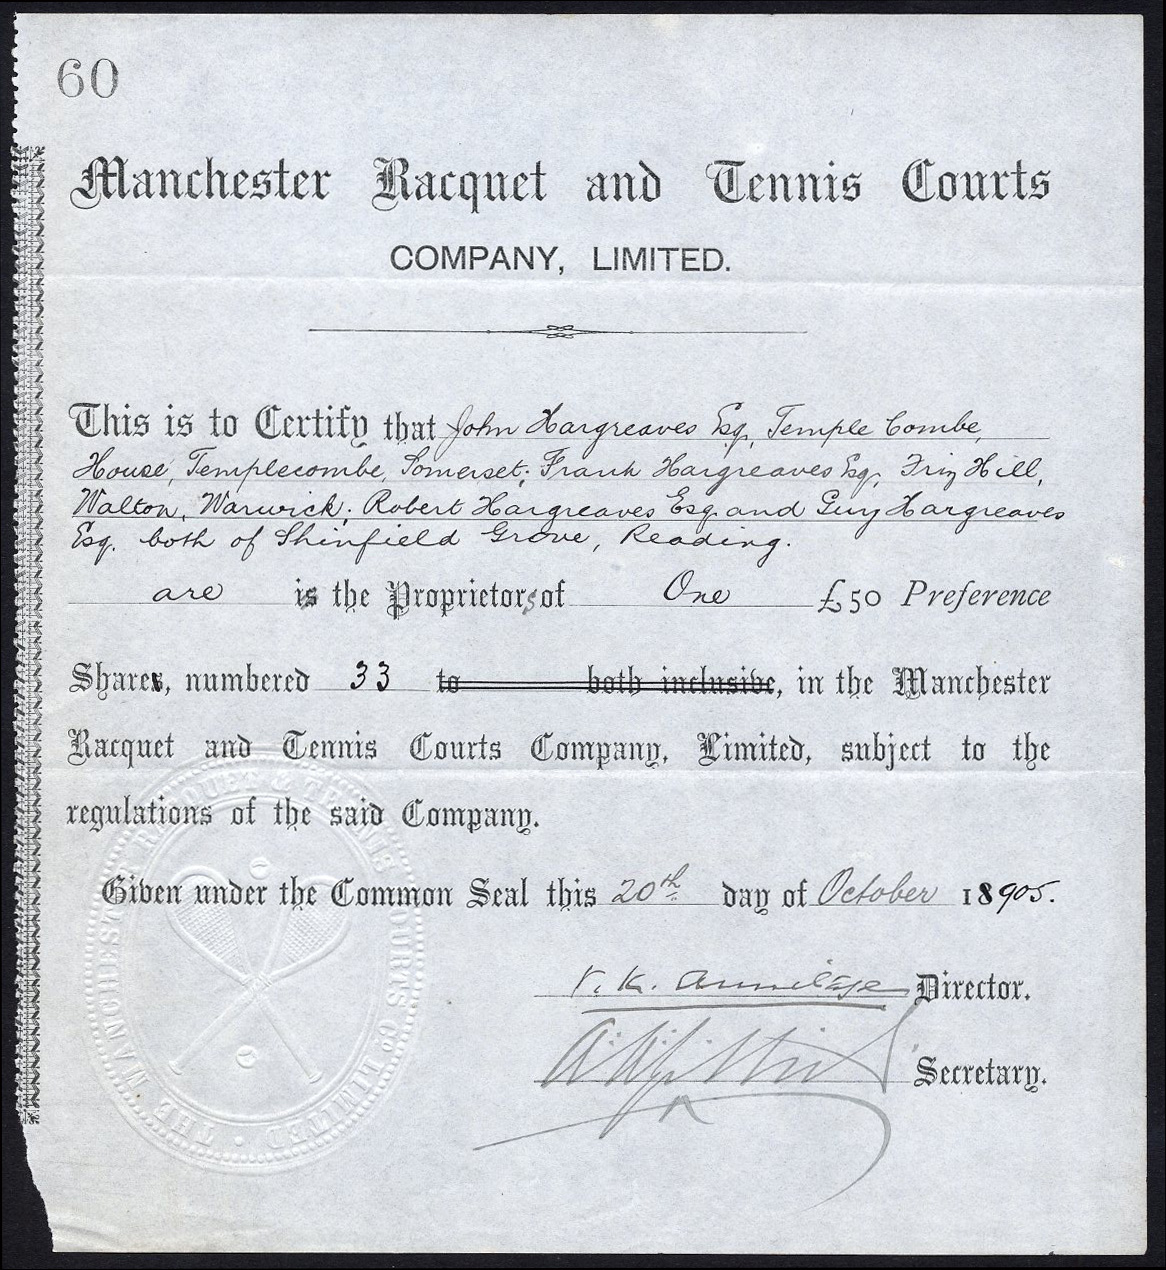 60
Manchester Racquet and Tennis Courts
COMPANY, LIMITED.
This is to Certify that John Hargreaves Esq, Temple Combe,
House, Templecombe, Somerset; Frank Hargreaves Esq, Friz Hill,
Walton, Warwick; Robert Hargreaves Esq and Guy Hargreaves
Esq. both of Shinfield Grove, Reading.
are is the Proprietors of One £50 Preference
Share, numbered 33 to both inclusive, in the Manchester
Racquet and Tennis Courts Company, Limited, subject to the
regulations of the said Company.
Given under the Common Seal this 20th day of October 18905.
V. K. Armitage Director.
Secretary.
THE MANCHESTER RACQUET & TENNIS COURTS Co LIMITED